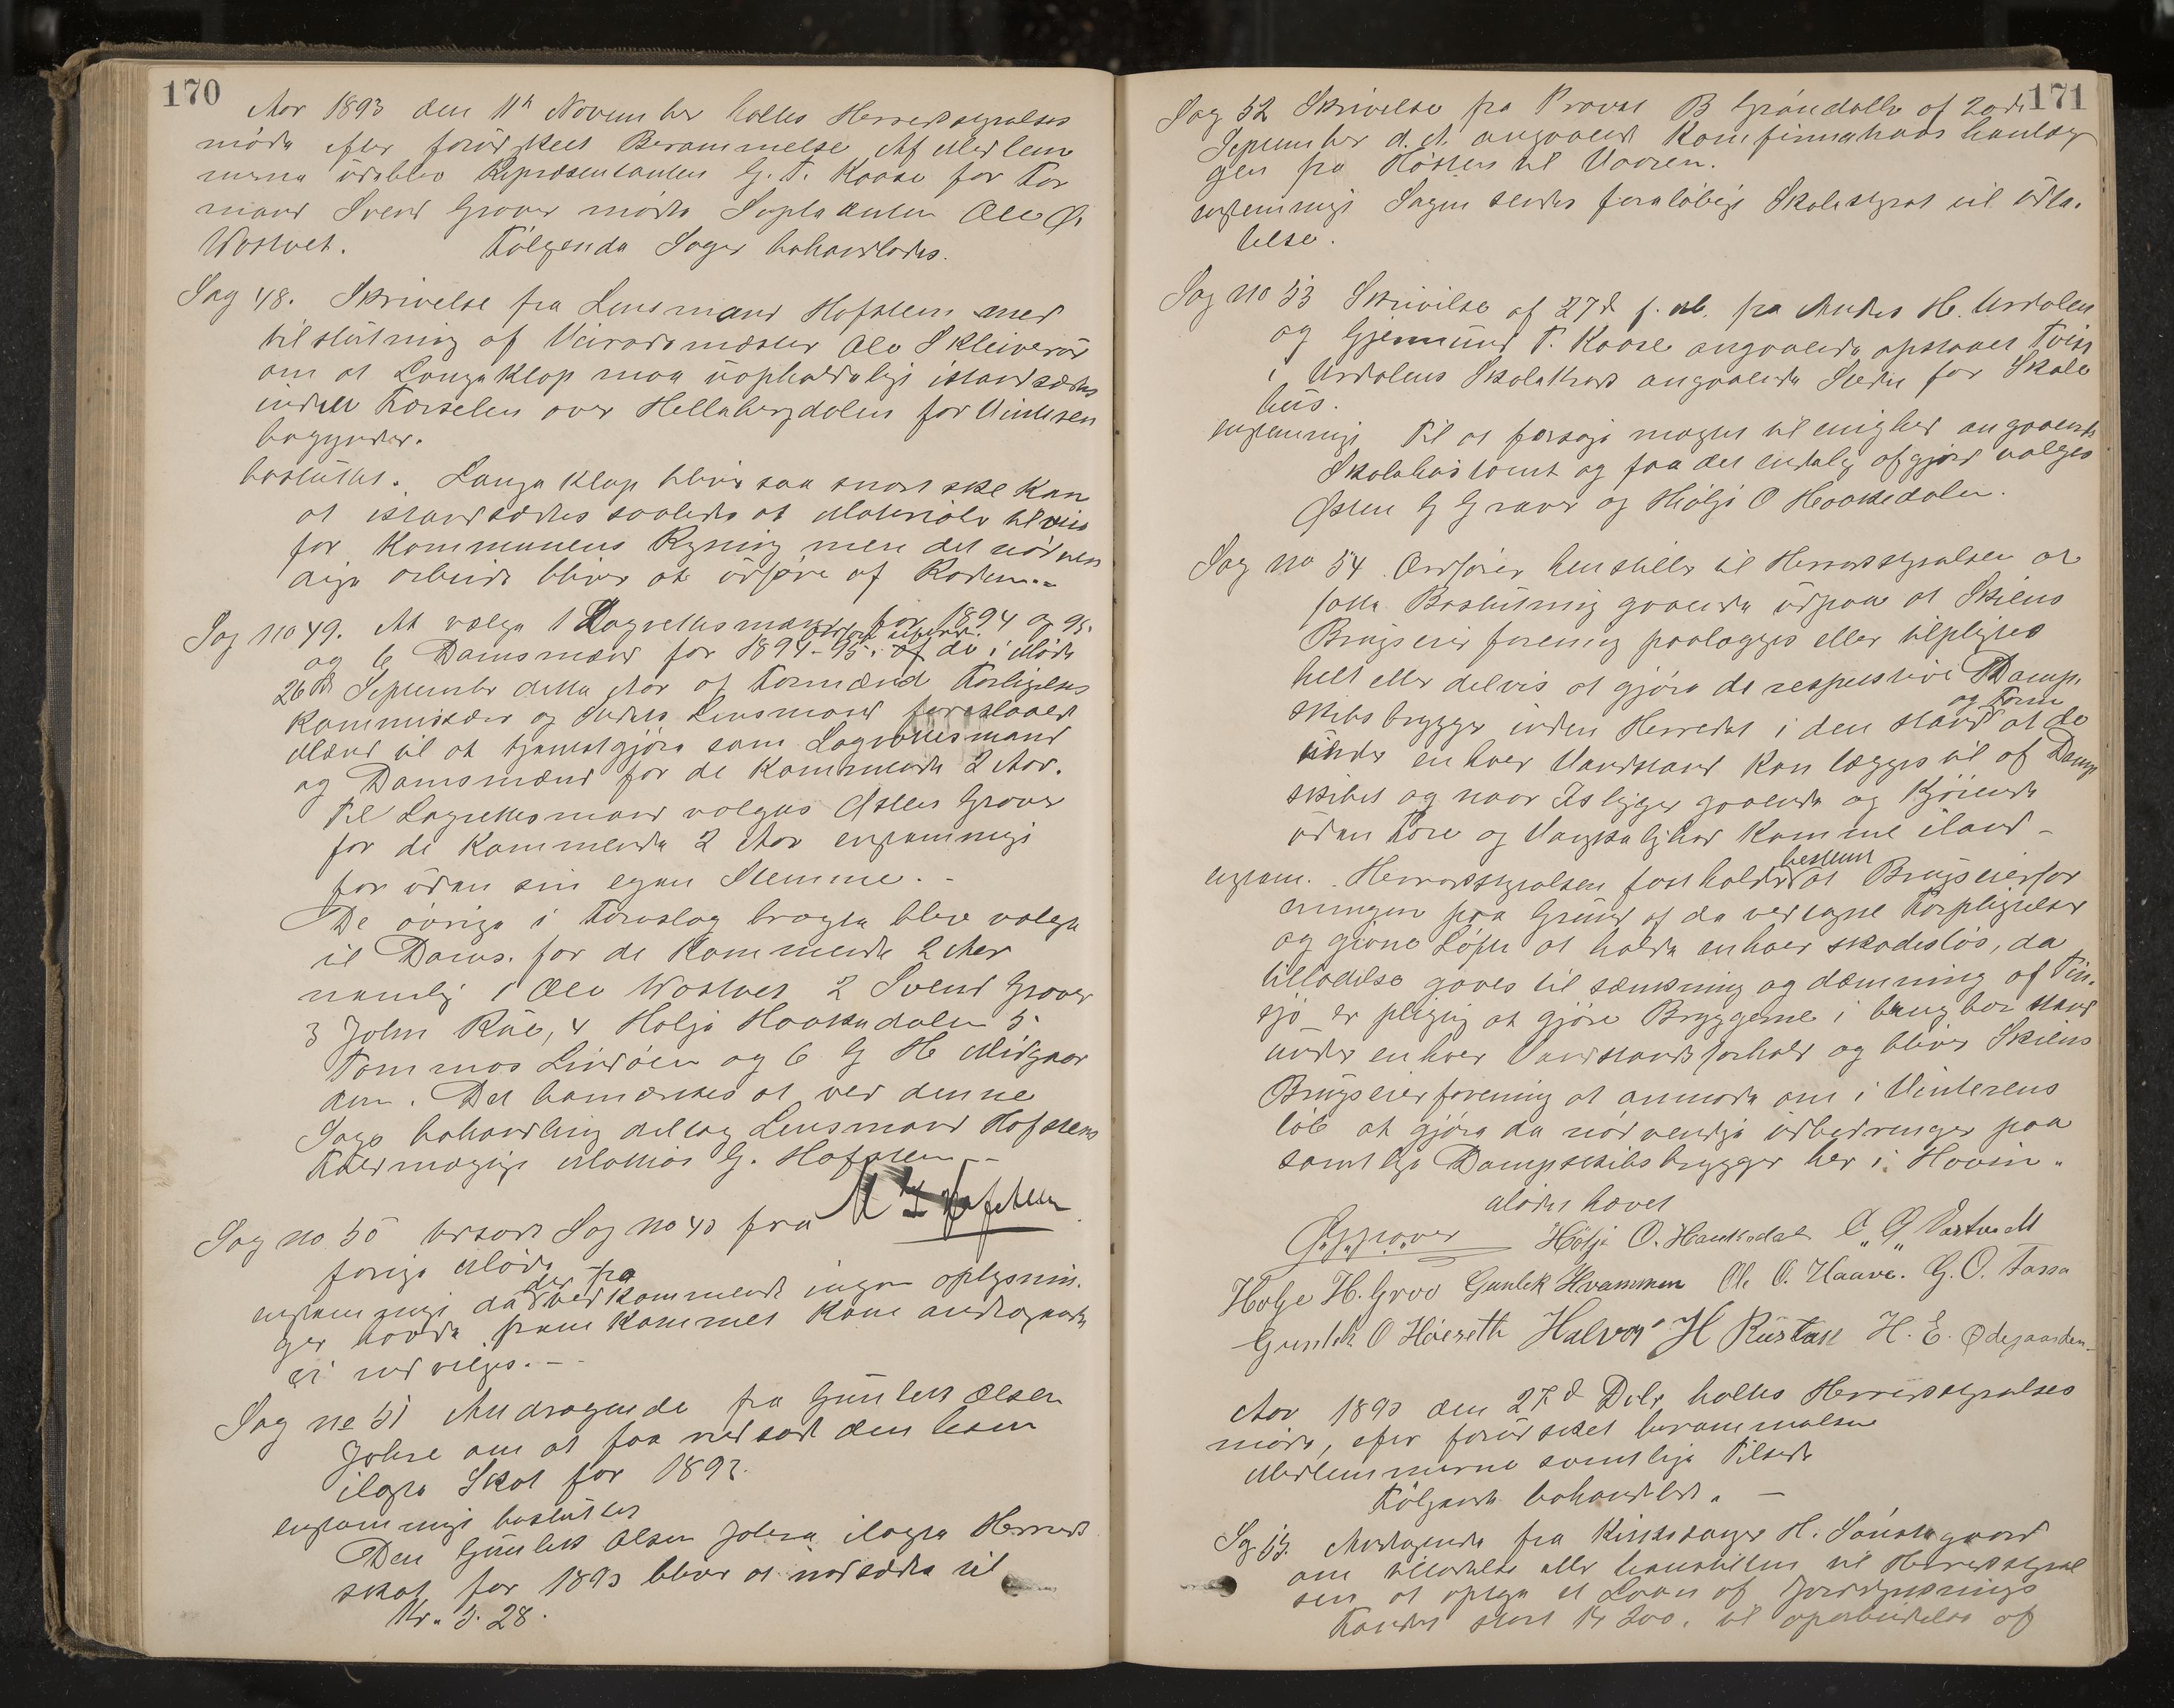 170
Aar 1893 den 11te November holtes Herredsstyrelses
møde efter forudskeet Berammelse. Af Medlem
merne udeblev Repræsentanten G. T. Kaase for For
mand Svend Graver mødte Supleanten Ole G.
Følgende Sager behandledes.
Sag 48. Skrivelse fra Lensmand Hofsten med
tilslutning af Veirodemester Ole
om at Langeklop maa uopholdelige istandsættes
indtil Førselen over Hellebergdalen for Vinteren
begynder.
besluttet. Langeklop bliver saa snart ske kan
at istandsættes saaledes at Materiale
for Kommunens Regning men det nødven
dige arbeide bliver at udføre af Roden.–
Sag No 49. At vælge 1 Lagrettesmand for 1894 og 95.
og 6 Domsmænd for 1894–95 af de i Møde
26de September dette Aar af Formænd Forligelses
kommissær og Lensmand foreslaaede
Mænd til at tjenestgjøre som Lagrettesmand
og Domsmænd for de kommende 2 Aar.
Til Lagrettesmand valgtes Østen Graver
for de kommende 2 Aar enstemmige
for uden sin egen Stemme.–
De øvrige i Forslag bragte blev valgte
til Doms. for de kommende 2 Aar
nemlig 1 Ole 2 Svend Graver
3 John Rue, 4 Holje Haakedalen 5.
Tommas Lindøen og 6 G H Midgaar
den. Det bemærkes at ved denne
Sags behandling deltog Lensmand Hofstens
Fuldmægtige Mathias G. Hofsten.–
Sag no 50 Sag no 43 fra
forige Møde
enstemmige da der fra vedkommende ingen oplysnin.
ger havde fremkommet kan andragende
ei indvilges.–
Sag no 51 Andragende fra Gunlek Olsen
Jobre om at faa nedsadt den ham
ilagte Skat for 1893.
enstemmige besluttet
Den Gunlek Olsen Jobre ilagte Herreds
skat for 1893 blive at nedsætte til
Kr. 5.28.
171
Sag 52 Skrivelse fra Provst B Grøndahl af
September d. A. angaaende Komfirmations henlæg
gen fra Høsten til Vaaren.
enstemmige Sagen sendes foreløbige Skolestyret til udta.
lelse.
Sag no 53 Skrivelse af 27d f. M. fra Anders H. Urdalen
og Gjermund T. Kaase angaaende opstaaet Tvist
i Urdalens Skolekreds angaaende Stedet for Skole
hus.
enstemmige Til at forsøge mægle til enighed angaaende
Skolehustomt og faa det endelig afgjørt valges
Østen G Graver og Holje O Haakedalen.
Sag no 54. Ordfører henstiller til Herredsstyrelsen at
fatte Beslutning gaaende udpaa at Skiens
Brugseierforening paalægges eller tilpligtes
helt eller delvis at gjøre de respektive Damp.
skibsbrygger inden Herredet i den stand og Form at de
under enhver Vandstand kan lægges til af Damp
skibet og naar Is ligger gaaende og Kjørende
uden Fare og Vanskelighed komme iland –
enstem. Herredsstyrelsen fastholder bestemt at Brugseierfor
eningen paa Grund af de vedtagne Forpligtelser
og givne Løfte at holde enhver skadesløs, da
tilladelse gaves til sænkning og dæmning af Tin.
sjø er pligtig at gjøre Bryggerne i brugbar stand
under enhver Vandstands forhold og bliver Skiens
Brugseierforening at anmode om i Vinterens
løb at gjøre de nødvendige udbedringer paa
samtlige Dampskibsbrygger her i Hovin.
Mødet hævet
Holje O. Haakedal
Holge H. Grov Gunlek Hvammen O. O. Haave. G. O.
Gunlek O Høiseth Halvor H Rustan H. E. Ødegaarden
Aar 1893 den 27d Dcbr holtes Herredsstyrelses
møde, efter forudskeet berammelse
Medlemmerne samtlige Tilstede
Følgende behandledes. –
Sag 55. Andragende fra Kirkesanger H. Sønstegaard
om tilladelse eller henstillen til Herredsstyrel
sen at optage et Laan af Jorddyrknings
Fondet stort Kr 300. til oparbeidelse af